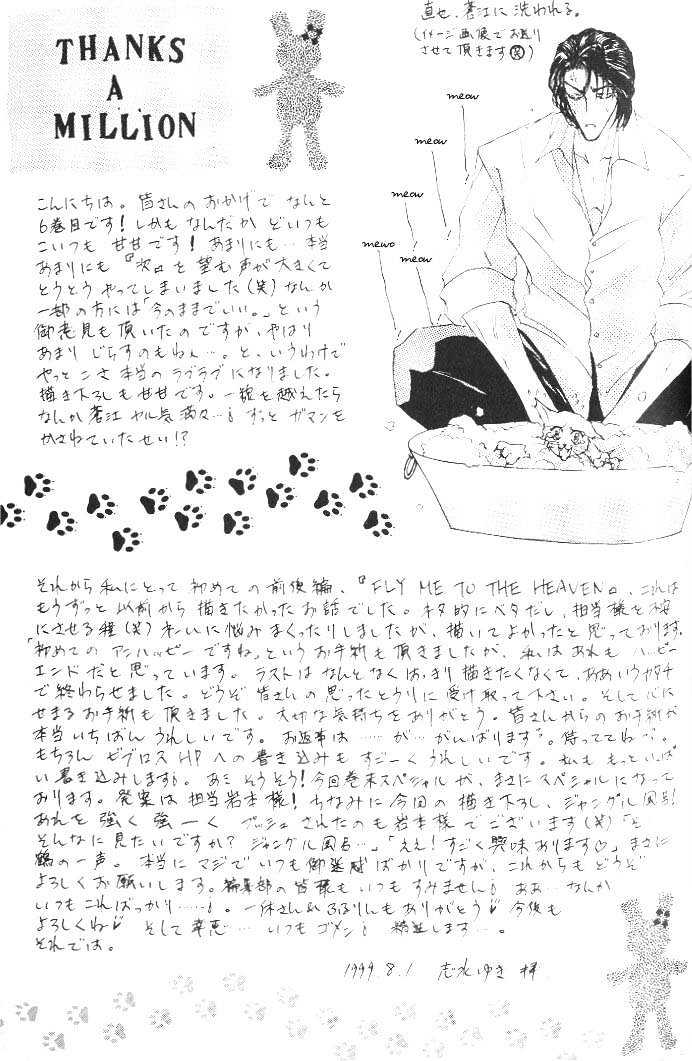 THANKS
A
MILLION
直セ、蒼江に洗われる。
(イメージ画像でお送り
させて頂きます(笑))
meow
meow
meow
meow
mewo
こんにちは。皆さんのおかげで なんと
6巻目です! しかも なんだか どいつも
こいつも 甘甘です! あまりにも… 本当
あまりにも『次』を望む声が大きくて
とうとう やってしまいました(笑) なんか
一部の方には「今のままでいい。」という
御意見も頂いたのですが、やはり
あまり じらすのもねぇ…。と、いうわけで
やっとこさ本当のラブラブになりました。
描き下ろしも甘甘です。一線を越えたら
なんか 蒼江 ヤル気満々…! ずっと ガマンを
かさねていたせい!?
それから 私にとって 初めての前後編、『FLY ME TO THE HEAVEN』、これは
もうずっと以前から描きたかったお話でした。ネタ的にベタだし、担当様を不安
にさせる程(笑) 大いに悩みまくったりしましたが、描いてよかったと思っております。
「初めてのアンハッピーですね」というお手紙も頂きましたが、私はあれも ハッピー
エンドだと思っています。ラストは なんとなく はっきり描きたくなくて、ああいうカタチ
で終わらせました。どうぞ皆さんの思ったとうりに受け取って下さい。そして心に
せまるお手紙も頂きました。大切な気持ちをありがとう。皆さんからのお手紙が
本当いちばん うれしいです。お返事は……が… がんばります。待っててね…。
もちろん ビブロス HP への書き込みも すごーく うれしいです。私も もっといっぱ
い書き込みします。あ、そうそう! 今回巻末スペシャルが、まさにスペシャルになって
おります。発案は担当岩本様! ちなみに今回の描き下ろし、ジャングル風呂!
あれを 強く 強ーく プッシュされたのも岩本様でございます(笑)「え
そんなに見たいですか? ジャングル風呂…」「ええ! すごく興味あります♡」まさに
鶴の一声。本当にマジでいつも御迷惑ばかりですが、これからもどうぞ
よろしくお願いします。編集部の皆様もいつもすみません! ああ… なんか
いつもこればっかり……!。一休さん&るるりんもありがとう♡ 今後も
よろしくね♡ そして 幸恵… いつもゴメン! 精進します…。
それでは。
1999.8.1 志水ゆき 拝